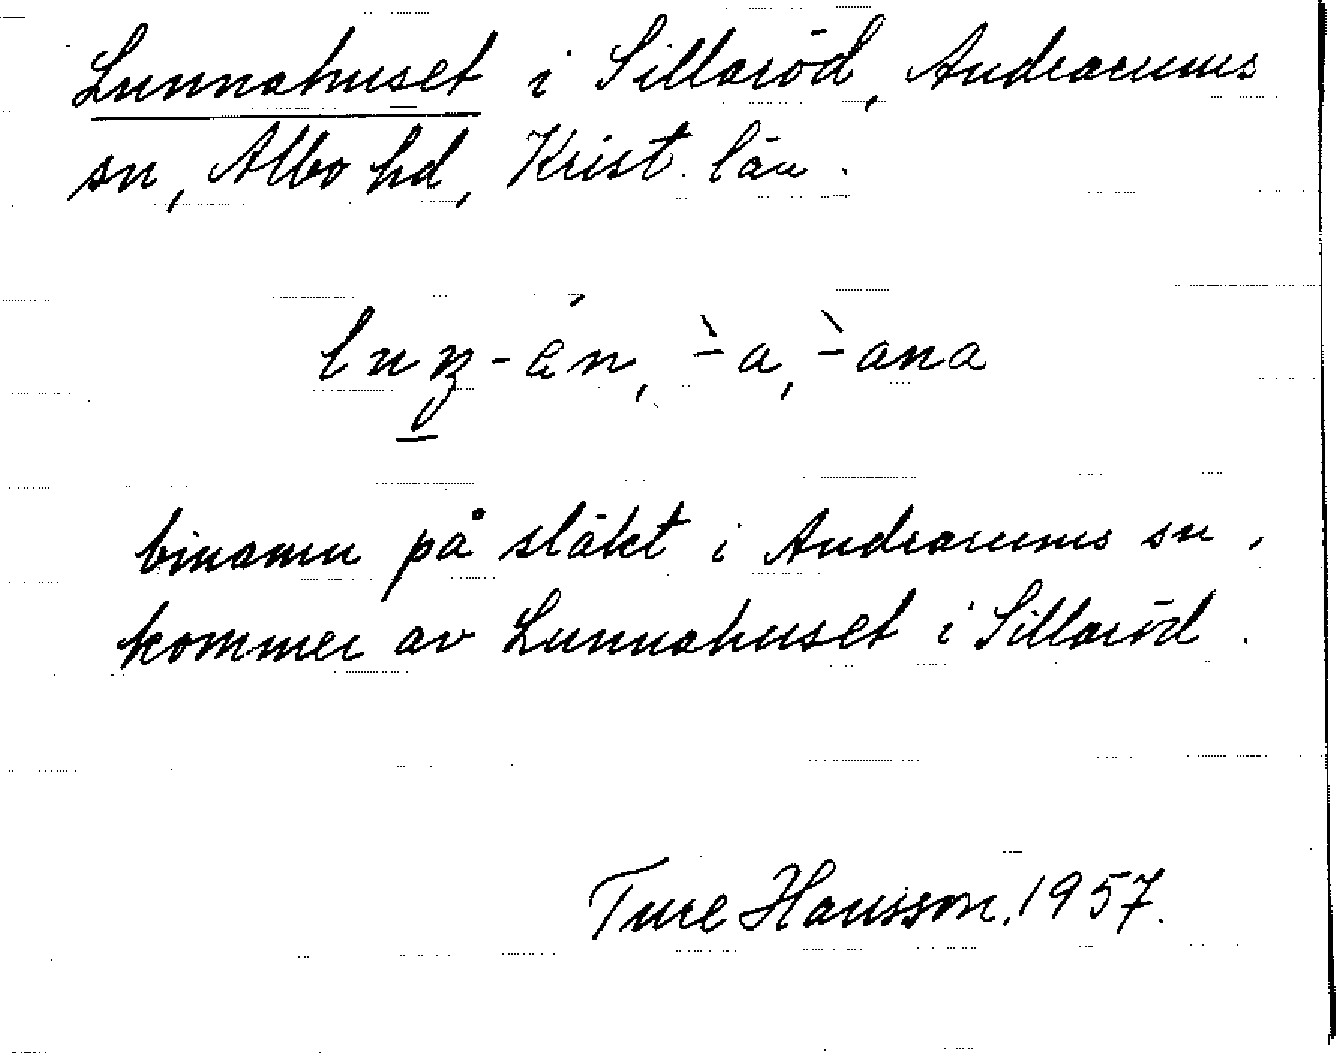 Lunnahuset i Sillaröd, Andrarums
sn, Albo hd, Krist. län.
binamn på släkt i Andrarums sn,
kommer av Lunnahuset i Sillaröd.
Ture Hansson, 1957.